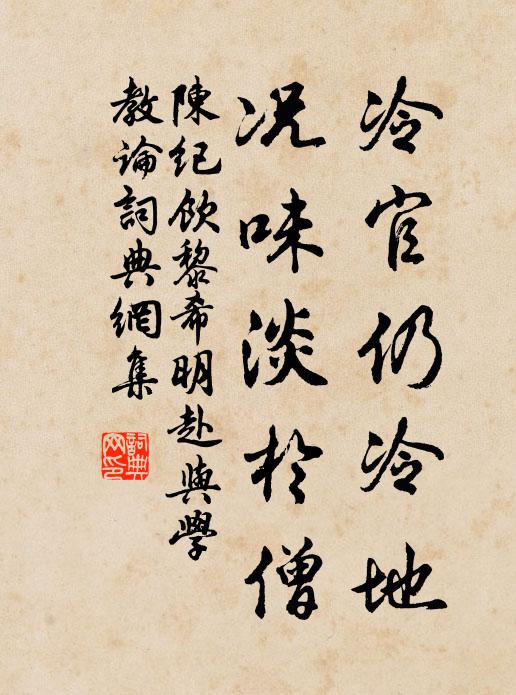 冷官仍冷地
况味淡於僧
陳紀飲黎希明赴與學
教論詞典網集
詞典
网印